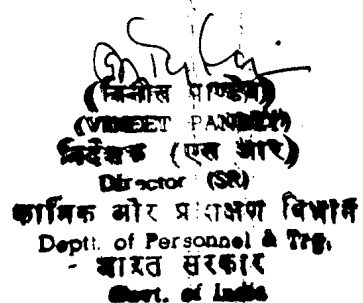 (विनीत पाण्डेय)
(VINEET PANDEY)
निदेशक (एस आर)
Director (SR)
कार्मिक और प्रशिक्षण विभाग
Deptt. of Personnel & Trg.
भारत सरकार
Govt. of India